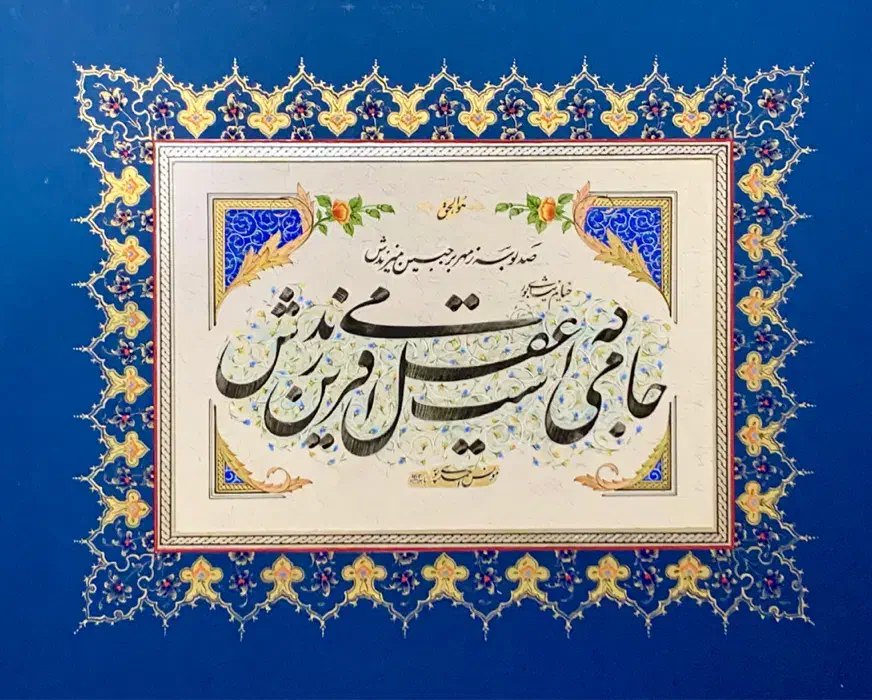 هوالحق
صد بوسه ز مهر بر جبین میزندش
خیام نیشابور
جامی است که عقل آفرین می زندش